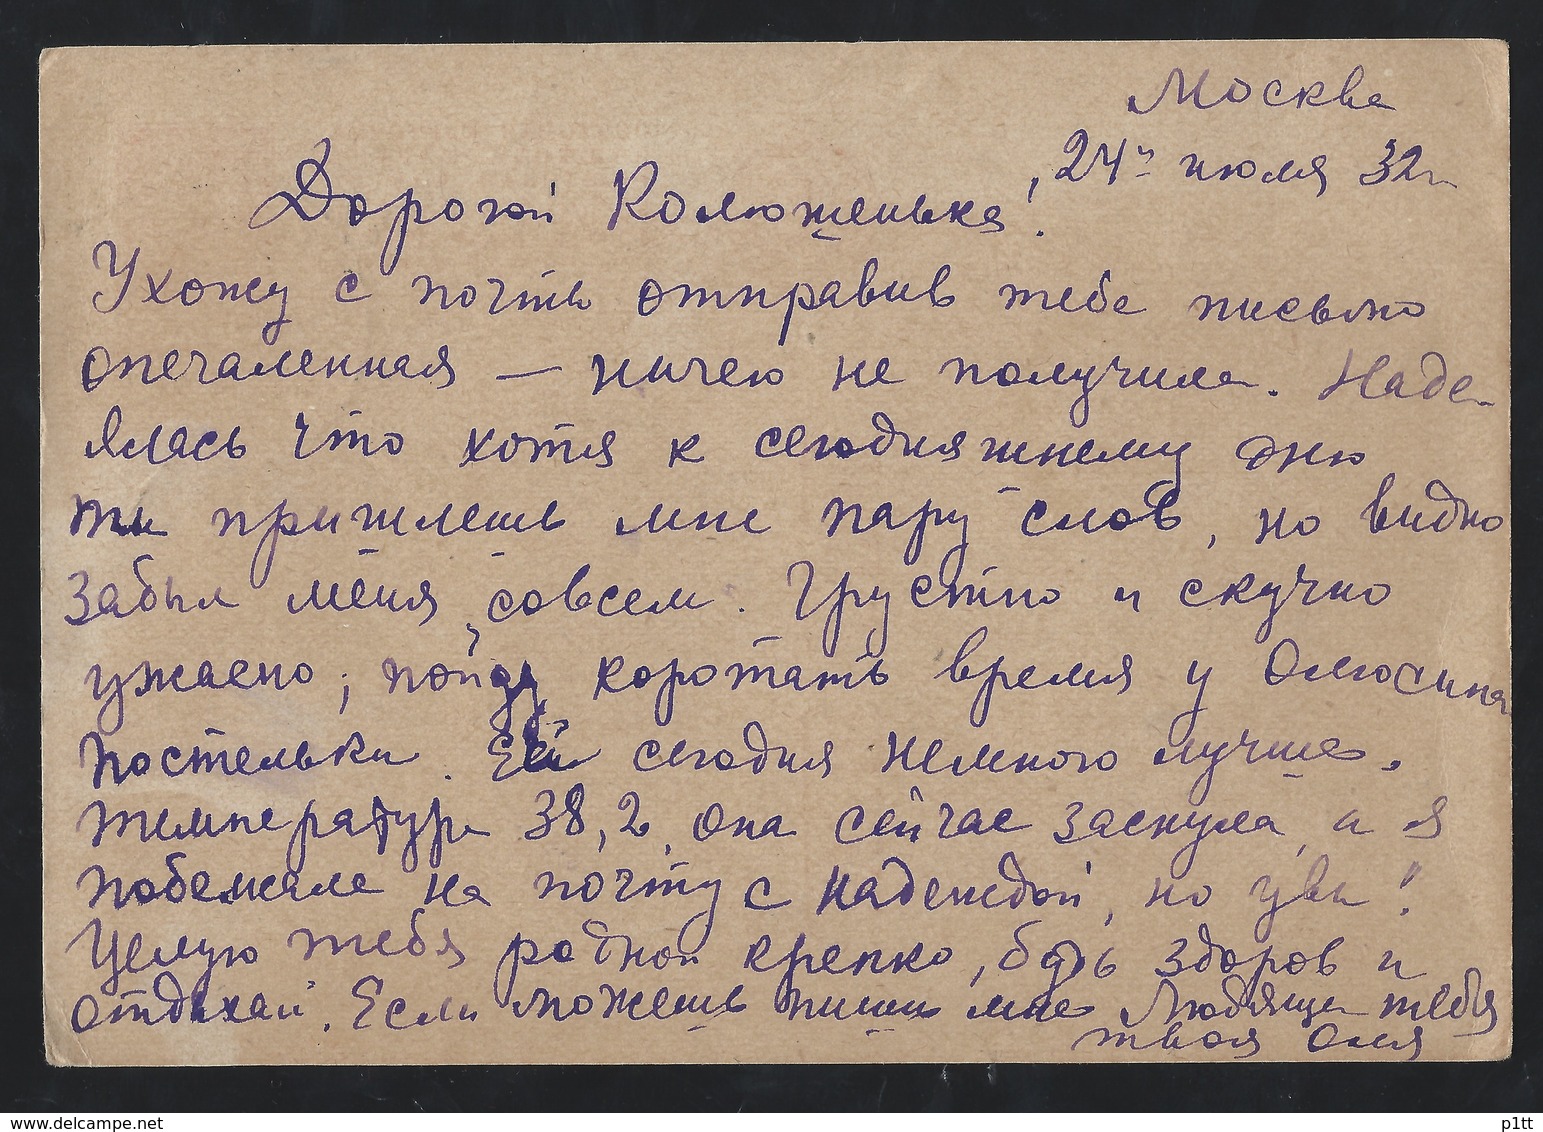 Москва
24го июля 32г
Дорогой Колюженька!
Ухожу с почты отправив тебе письмо
опечаленная — ничего не получила. Наде-
ялась что хотя к сегодняжнему дню
ты пришлешь мне пару слов, но видно
забыл меня совсем. Грустно и скучно
ужасно; пойду коротать время у Олюсиной
постельки. Ей сегодня немного лучше.
температура 38,2, она сейчас заснула, а я
побежала на почту с надеждой, но увы!
Целую тебя родной крепко, будь здоров и
отдыхай. Если можешь пиши мне Любящая тебя
твоя Оля
delcampe.net
p1tt